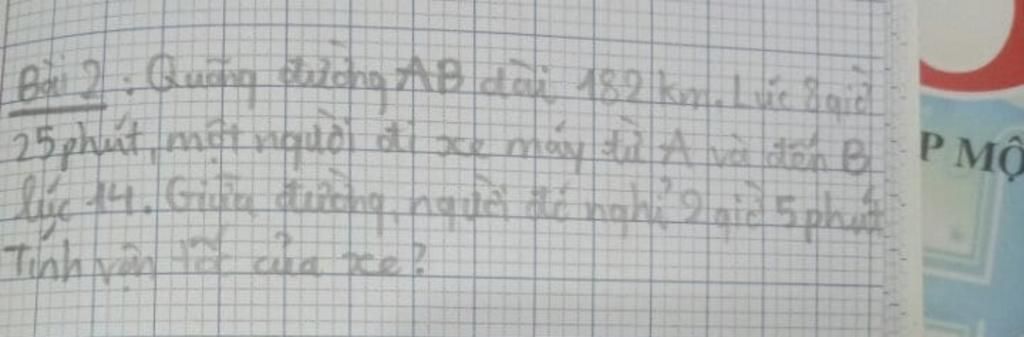 Bài 2: Quãng đường AB dài 182 km. Lúc 8 giờ
25 phút, một người đi xe máy từ A và đến B
lúc 14. Giữa đường, người đó nghỉ 2 giờ 5 phút
Tính vận tốc của xe?
P MỘ